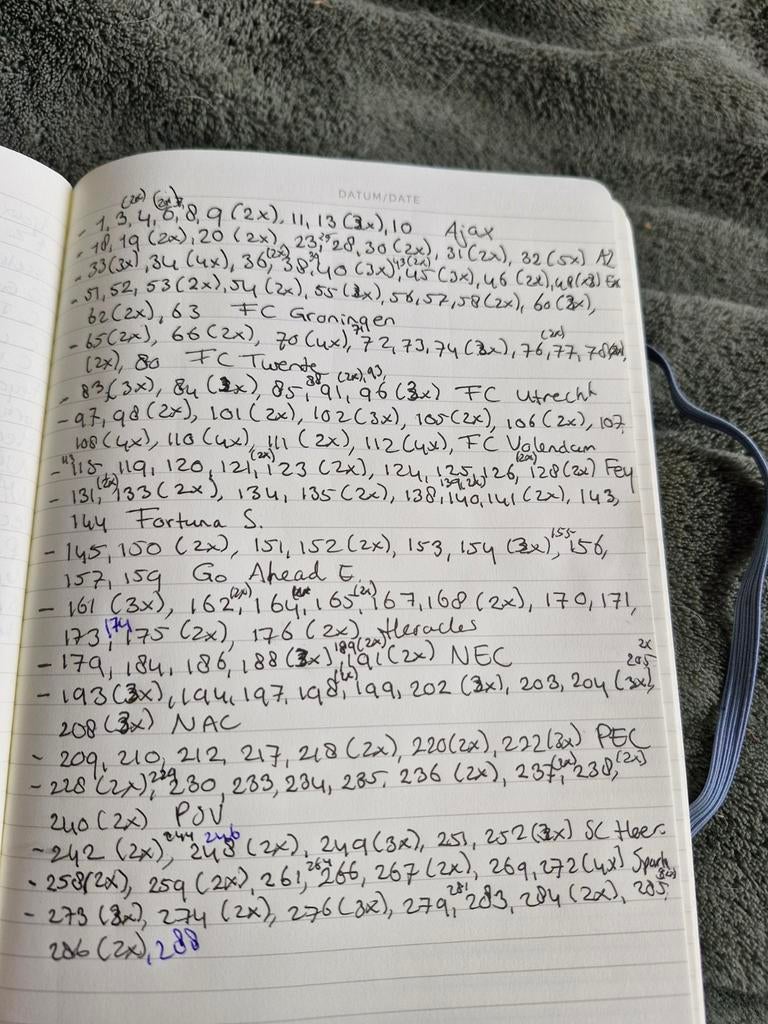 DATUM/DATE
(2x) (2x)
- 1, 3, 4, 6, 8, 9 (2x), 11, 13 (3x), 10 Ajax
- 18, 19 (2x), 20 (2x), 23, 28, 30 (2x), 31 (2x), 32 (5x) AZ
- 33 (3x), 34 (4x), 36 (2x), 38, 39, 40 (3x), 43 (2x), 45 (3x), 46 (2x), 48 Ex
- 51, 52, 53 (2x), 54 (2x), 55 (3x), 56, 57, 58 (2x), 60 (3x),
62 (2x), 63 FC Groningen
- 65 (2x), 66 (2x), 70 (4x), 71, 72, 73, 74 (3x), 76, (2x) 77, 78
(2x), 80 FC Twente
- 83 (3x), 84 (3x), 85, 88, 91, (2x), 93, 96 (3x) FC Utrecht
- 97, 98 (2x), 101 (2x), 102 (3x), 105 (2x), 106 (2x), 107,
108 (4x), 110 (4x), 111 (2x), 112 (4x), FC Volendam
- 113 115, 119, 120, 121, (2x) 123 (2x), 124, 125, 126, (2x) 128 (2x) Fey
- 131, (2x) 133 (2x), 134, 135 (2x), 138, 139 (2x) 140, 141 (2x), 143,
144 Fortuna S.
- 145, 150 (2x), 151, 152 (2x), 153, 154 (3x), 155 156,
157, 159 Go Ahead E.
- 161 (3x), 162, (2x) 164, (2x) 165, (2x) 167, 168 (2x), 170, 171,
173, 174 175 (2x), 176 (2x) Heracles
- 179, 184, 186, 188 (3x) 189 (2x), 191 (2x) NEC
- 193 (3x), 194, 197, 198, (2x) 199, 202 (3x), 203, 204 (3x), 205 2x
208 (3x) NAC
- 209, 210, 212, 217, 218 (2x), 220 (2x), 222 (3x) PEC
- 228 (2x), 229 230, 233, 234, 235, 236 (2x), 237, (2x) 238, (2x)
240 (2x) PSV
- 242 (2x), 244 246 248 (2x), 249 (3x), 251, 252 (3x) SC Heer.
- 258 (2x), 259 (2x), 261, 264 266, 267 (2x), 269, 272 (4x) Spark
- 273 (3x), 274 (2x), 276 (3x), 279, 281 283, 284 (2x), 285,
286 (2x), 288